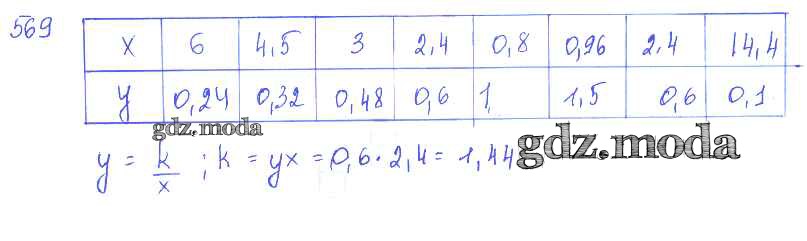 569
x 6 4,5 3 2,4 0,8 0,96 2,4 14,4
y 0,24 0,32 0,48 0,6 1 1,5 0,6 0,1
gdz.moda
y = k/x ; k = yx = 0,6 · 2,4 = 1,44
gdz.moda